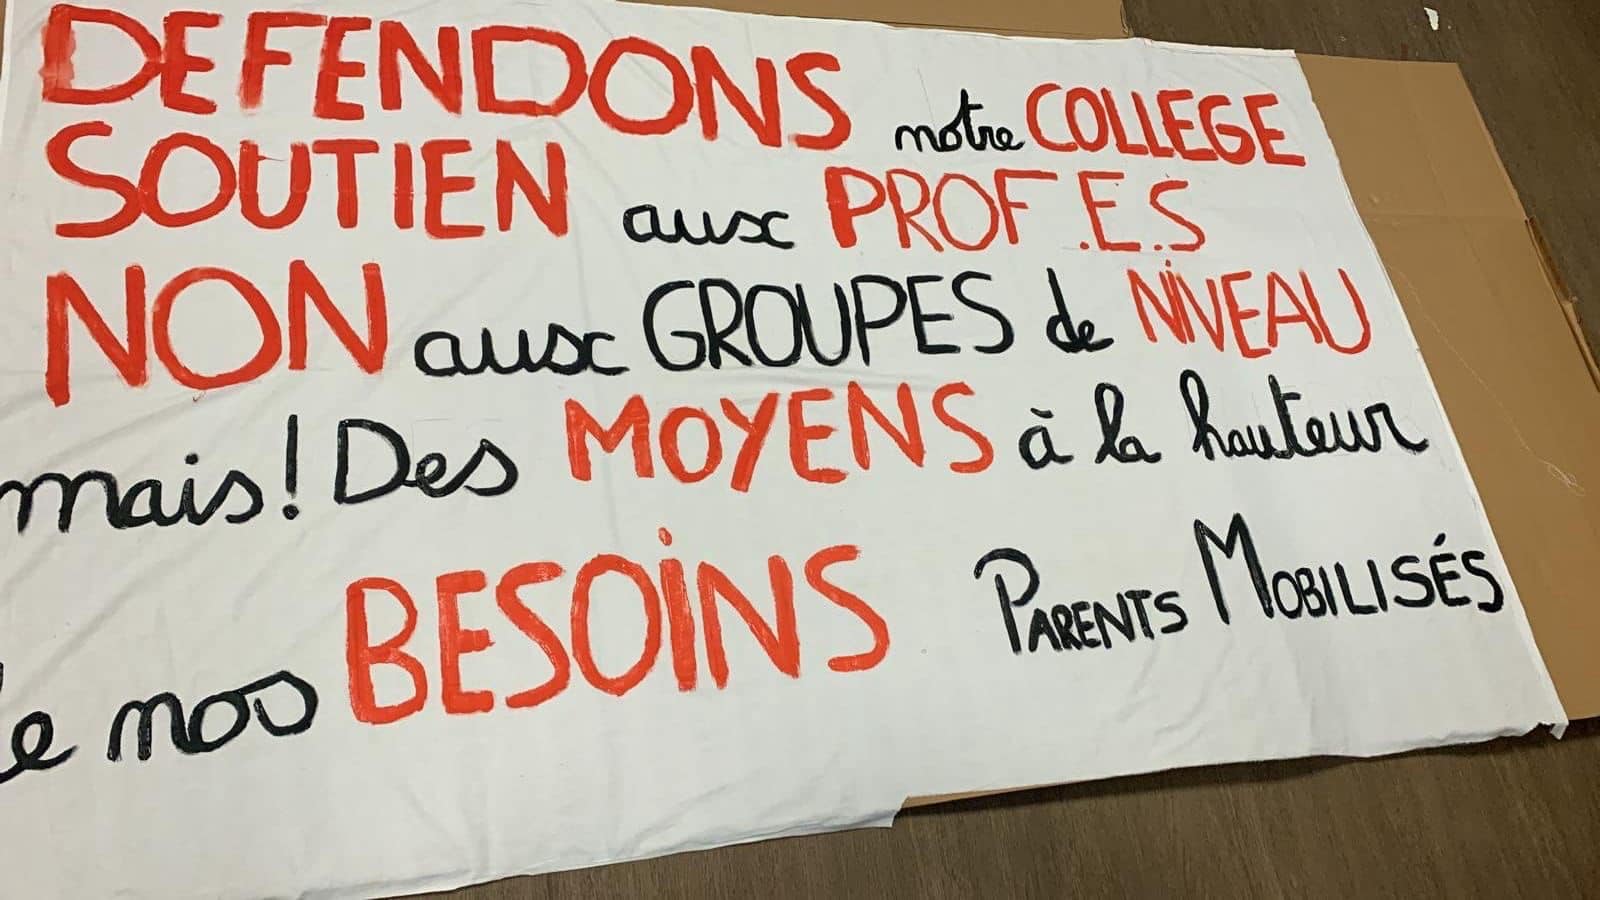 DEFENDONS notre COLLEGE
SOUTIEN aux PROF.E.S
NON aux GROUPES de NIVEAU
mais! Des MOYENS à la hauteur
de nos BESOINS PARENTS MOBILISÉS